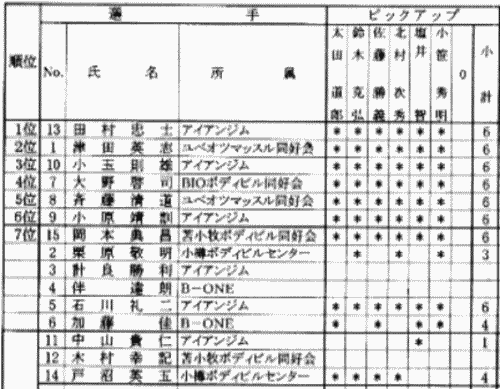 選 手 ピックアップ
順位 No. 氏 名 所 属 太田 道郎 鈴木 克弘 佐藤 勝義 北村 次秀 塩井 智 小笹 秀明 0 小計
1位 13 田村忠士 アイアンジム * * * * * * 6
2位 1 津田英志 ユベオツマッスル同好会 * * * * * * 6
3位 10 小玉則雄 アイアンジム * * * * * * 6
4位 7 大野啓司 BIOボディビル同好会 * * * * * * 6
5位 8 斉藤清道 ユベオツマッスル同好会 * * * * * * 6
6位 9 小原靖訓 アイアンジム * * * * * * 6
7位 15 岡本典昌 苫小牧ボディビル同好会 * * * * * * 6
2 栗原敬明 小樽ボディビルセンター * * * 3
3 計良勝利 アイアンジム
4 伴 達朗 B－ONE
5 石川礼二 アイアンジム * * * * * * 6
6 加藤 佳 B－ONE * * * * 4
11 中山貴仁 アイアンジム * 1
12 木村幸記 苫小牧ボディビル同好会
14 戸沼英五 小樽ボディビルセンター * * * * 4